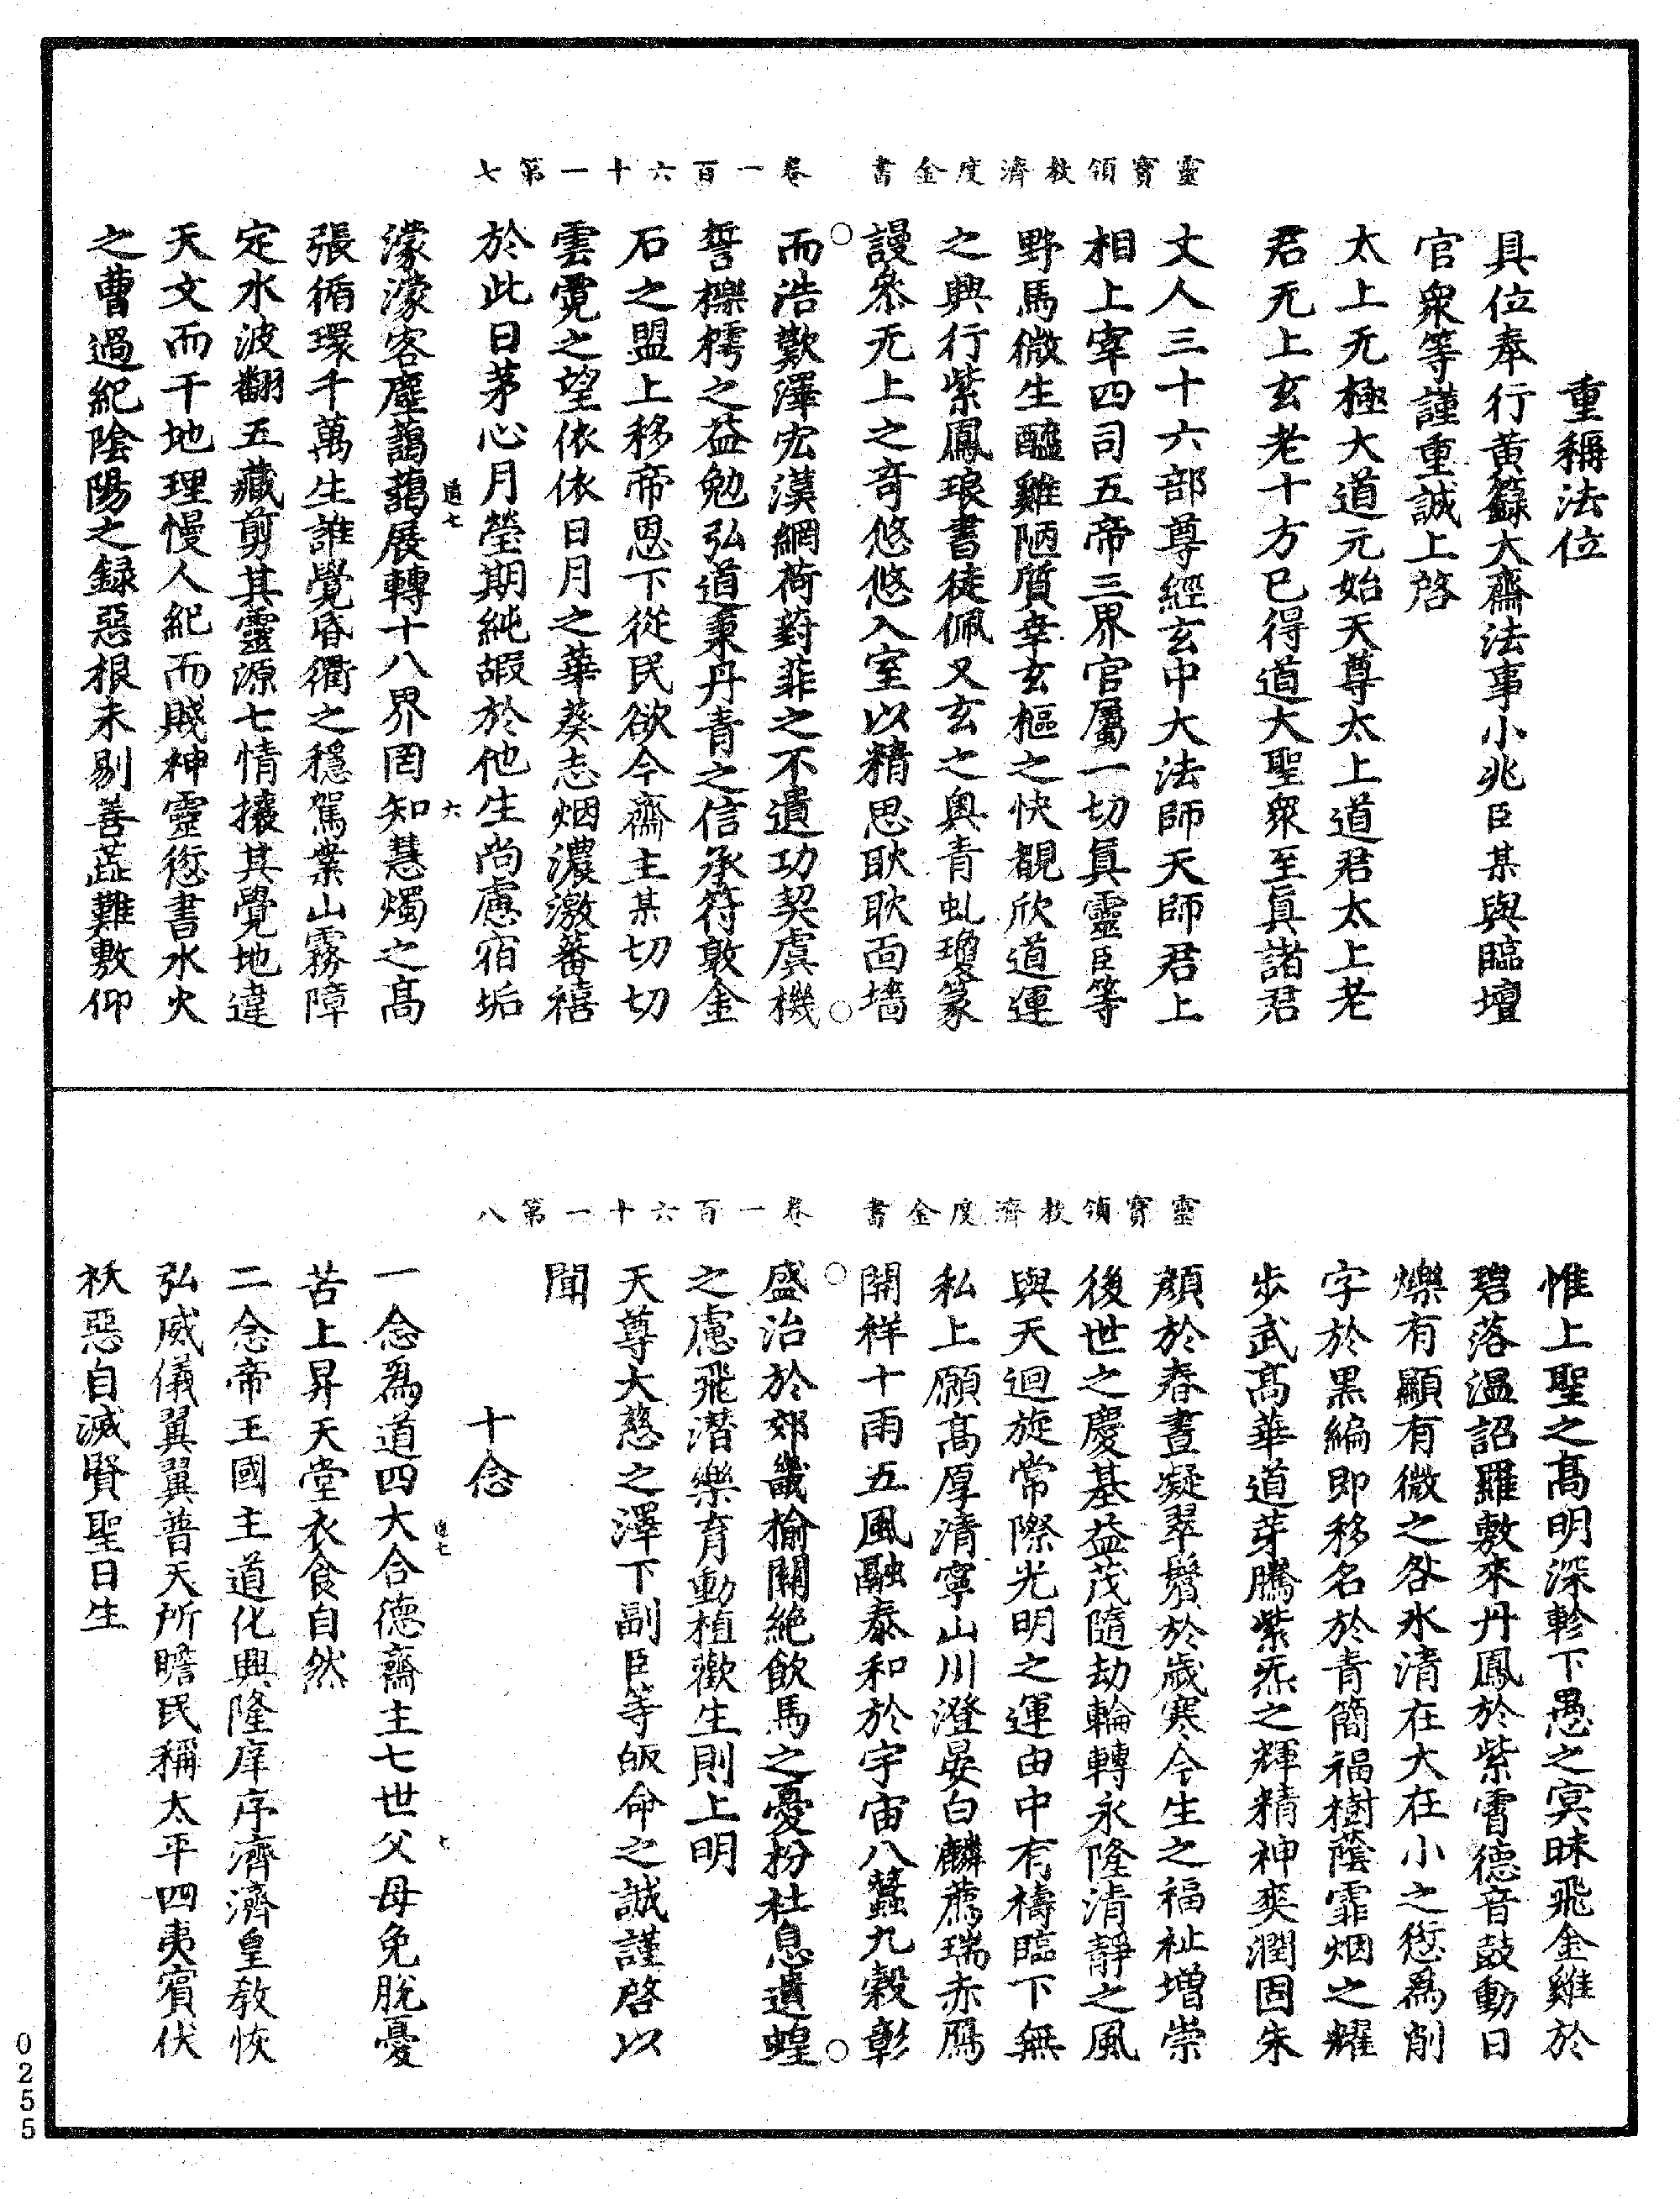 靈寶領教濟度金書　卷一百六十一第七
重稱法位
具位奉行黃籙大齋法事小兆臣某與臨壇
官衆等謹重誠上啓
太上无極大道元始天尊太上道君太上老
君无上玄老十方已得道大聖衆至眞諸君
丈人三十六部尊經玄中大法師天師君上
相上宰四司五帝三界官屬一切眞靈臣等
野馬微生醯雞陋質幸玄樞之快覩欣道運
之興行紫鳳琅書徒佩又玄之奧青虬瓊篆
謾叅无上之奇悠悠入室以精思耿耿面墻
而浩歎澤宏漠網荷葑菲之不遺功契虞機
誓櫟樗之益勉弘道秉丹青之信承符敦金
石之盟上移帝恩下從民欲今齋主某切切
雲霓之望依依日月之華葵志烟濃激蕃禧
於此日茅心月瑩期純嘏於他生尚慮宿垢
濛濛客塵藹藹展轉十八界罔知慧燭之高
張循環千萬生誰覺昏衢之穩駕業山霧障
定水波翻五藏剪其靈源七情攘其覺地違
天文而干地理慢人紀而賤神靈愆書水火
之曹過紀陰陽之録惡根未剔善蘂難敷仰
道七
六
靈寶領教濟度金書　卷一百六十一第八
惟上聖之高明深軫下愚之冥昧飛金雞於
碧落溫詔羅敷來丹鳳於紫霄德音鼓動日
爍有顯有微之咎水清在大在小之愆爲削
字於黑編即移名於青簡福樹蔭霏烟之耀
步武高華道芽騰紫炁之輝精神爽潤固朱
顔於春晝凝翠鬢於歲寒今生之福祉增崇
後世之慶基益茂隨劫輪轉永隆清靜之風
與天迴旋常際光明之運由中有禱臨下無
私上願高厚清寧山川澄晏白麟薦瑞赤鴈
開祥十雨五風融泰和於宇宙八蠶九穀彰
盛治於郊畿榆關絶飲馬之憂枌社息遺蝗
之慮飛潛樂育動植歡生則上明
天尊大慈之澤下副臣等皈命之誠謹啓以
聞
十念
一念爲道四大合德齋主七世父母免脫憂
苦上昇天堂衣食自然
二念帝王國主道化興隆庠序濟濟皇敎恢
弘威儀翼翼普天所瞻民稱太平四夷賓伏
祅惡自滅賢聖日生
道七
七
0255